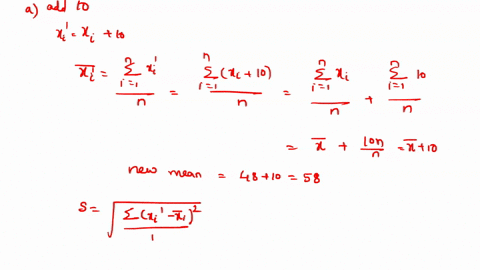 a) add 10
xi' = xi + 10
x̄i' = Σ(i=1 to n) xi' / n = Σ(i=1 to n) (xi + 10) / n = Σ(i=1 to n) xi / n + Σ(i=1 to n) 10 / n
= x̄ + 10n/n = x̄ + 10
new mean = 48 + 10 = 58
S = √( Σ(xi' - x̄i)² / 1